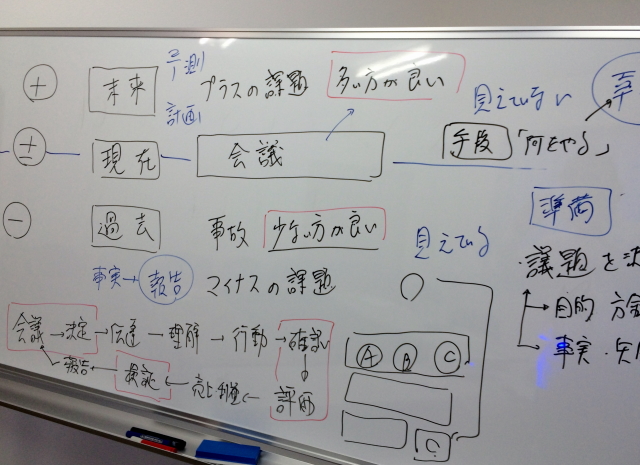 予測
⊕ 未来 プラスの課題 多い方が良い
計画
見えていない
⊕ 現在 会議
手段 「何をやる」
⊖ 過去 事故 少ない方が良い
見えている
準備
事実→報告 マイナスの課題
・議題を決
→目的 方
→事実・
会議→決定→伝達→理解→行動→確認
評価
報告
A B C
C